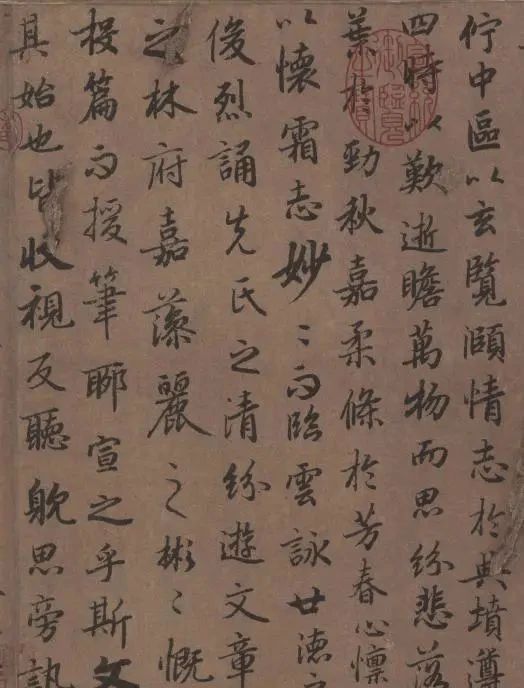 佇中區以玄覽頤情志於典墳遵
四時以歎逝瞻萬物而思紛悲落
葉於勁秋嘉柔條於芳春心懍
以懷霜志妙〻而臨雲詠世德之
俊烈誦先民之清紛遊文章
之林府嘉藻麗之彬〻慨
投篇而援筆聊宣之乎斯文
其始也皆收視反聽耽思旁訊